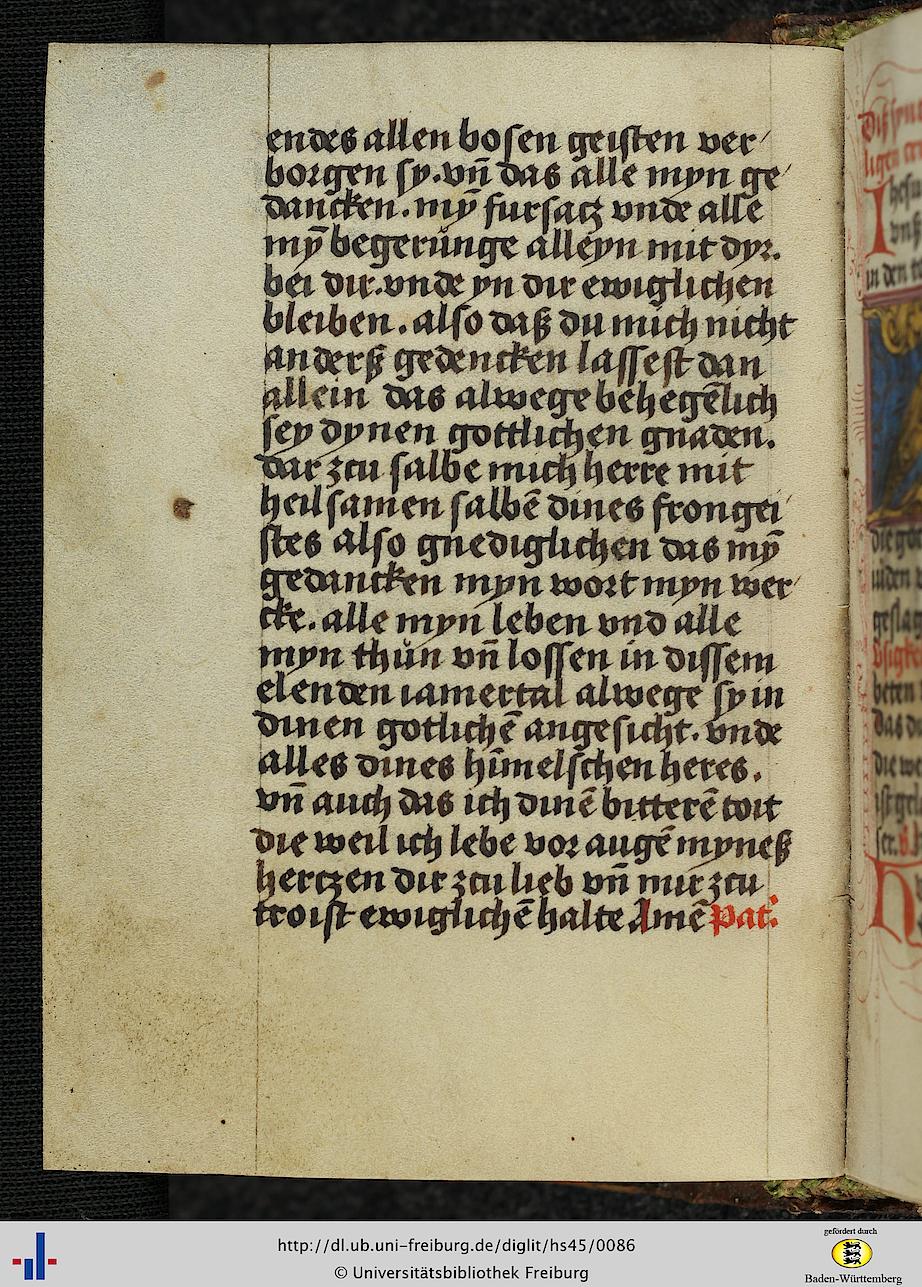 endes allen bosen geisten ver⸗
borgen sy. vn̄ das alle myn ge⸗
dancken. mȳ fursatz vnde alle
mȳ begerůnge alleyn mit dyr.
bei dir. vnde yn dir ewiglichen
bleiben. also daß du mich nicht
anderß gedencken lassest dan
allein das alwege behegēlich
sey dynen gottlichen gnaden.
dar zcu salbe mich herre mit
heilsamen salbē dines frongei⸗
stes also gnediglichen das mȳ
gedancken myn wort myn wer⸗
cke. alle myn leben vnd alle
myn thůn vn̄ lossen in dissem
elenden iamertal alwege sy in
dinen gotlichē angesicht. vnde
alles dines hīmelschen heres.
vn̄ auch das ich dinē bitterē toit
die weil ich lebe vor augē myneß
hertzen dir zcu lieb vn̄ mir zcu
troist ewiglichē halte Amē Pat̄
in den
beten
das
http://dl.ub.uni-freiburg.de/diglit/hs45/0086
© Universitätsbibliothek Freiburg
gefördert durch
Baden-Württemberg